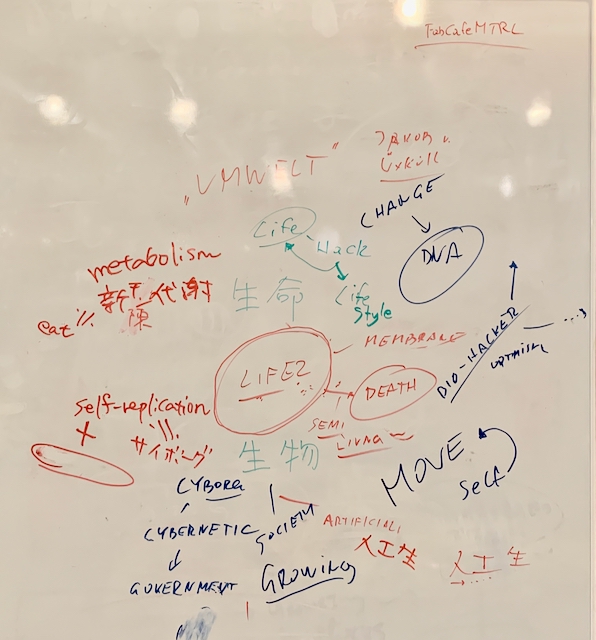 FabCafeMTRL
"UMWELT"
Jakob v.
Üxküll
CHANGE
DNA
Life
Hack
Life
Style
metabolism
新陳代謝
eat
生命
MEMBRANE
LIFE?
DEATH
BIO-HACKER
OPTIMISM
SEMI
LIVING
self-replication
サイボーグ
生物
MOVE
Self
CYBORG
CYBERNETIC
GOVERNMENT
SOCIETY
GROWING
ARTIFICIAL
人工生
人工生